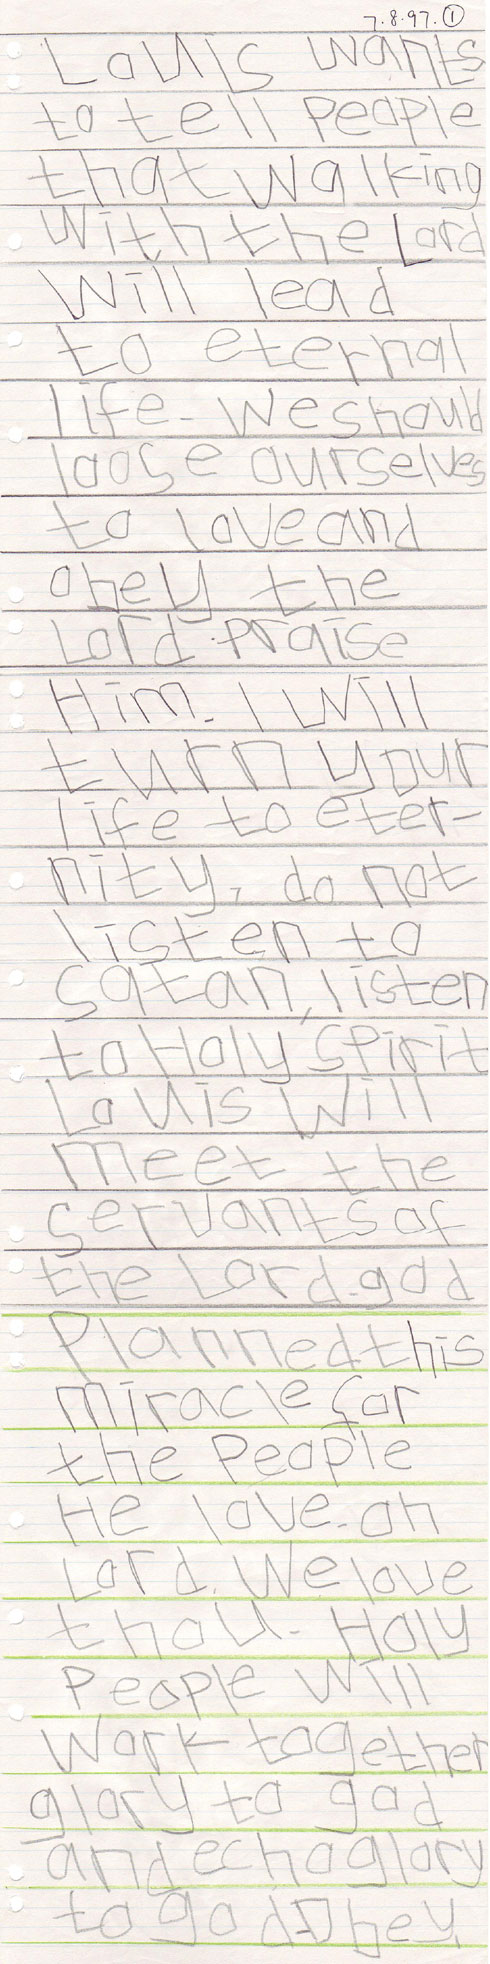 7.8.97. ①
Louis wants
to tell People
that walking
with the Lord
will lead
to eternal
life - we should
loose ourselves
to love and
obey the
Lord. Praise
Him. I will
turn your
life to eter-
nity, do not
listen to
satan, listen
to Holy Spirit
Louis will
meet the
servants of
the Lord. god
Planned this
miracle for
the People
He love. oh
Lord. we love
thou. Holy
People will
work together
glory to god
and echo glory
to god. obey.